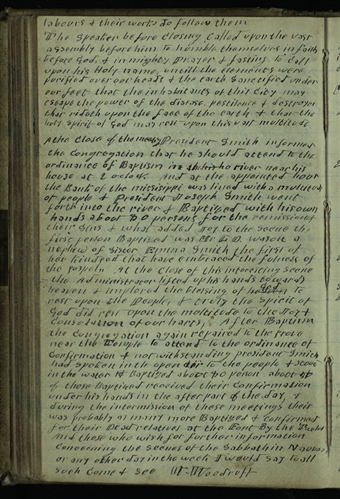 labours & their works do follow them
The speaker before closing called upon the vast
assembly before him to humble themselves in faith
before God, & in mighty Prayer & fasting to call
upon his Holy name, untill the elements were
purified over our heads & the earth sanctified under
our feet that the inhabitants of this City may
escape the power of the disease, pestilence & destroyer
that rideth upon the face of the earth & that the
holy spirit of God may rest upon this vast multitude
At the close of the meeting President Smith informed
the Congregation that he should attend to the
ordinance of Baptism in the river near his
house at 2 oclock. And at the appointed hour
the Bank of the mississippi was lined with a multitude
of people & President Joseph Smith went
forth into the river & Baptized with his own
hands about 80 persons for the remission of
their sins & what added joy to the scene the
first person Baptized was Mr L.D. Wasson a
nephew of Sister Emma Smith the first of
her kindred that have embraced the fulness of
the gospel. At the close of this interesting scene
the Administrator lifted up his hands towards
heaven & implored the blessing of God to
rest upon the People, & truly the spirit of
God did rest upon the multitude to the Joy &
Consolation of our hearts. After Baptism
the Congregation again repaired to the grove
near the Temple to attend to the ordinance of
Confirmation & notwithstanding president Smith
had spoken in the open air to the people & stood
in the water & Baptized about 80 persons about 50
of those Baptized received their Confirmation
under his hands in the after part of the day, &
during the intermission of these meetings their
was probably as many more Baptized & Confirmed
for their Dead relatives at the Font By the
And those who wish for further information
Concerning the scenes of the Sabbath in Nauvoo
or any other day in the week I would say to all
such Come & see W. Woodruff